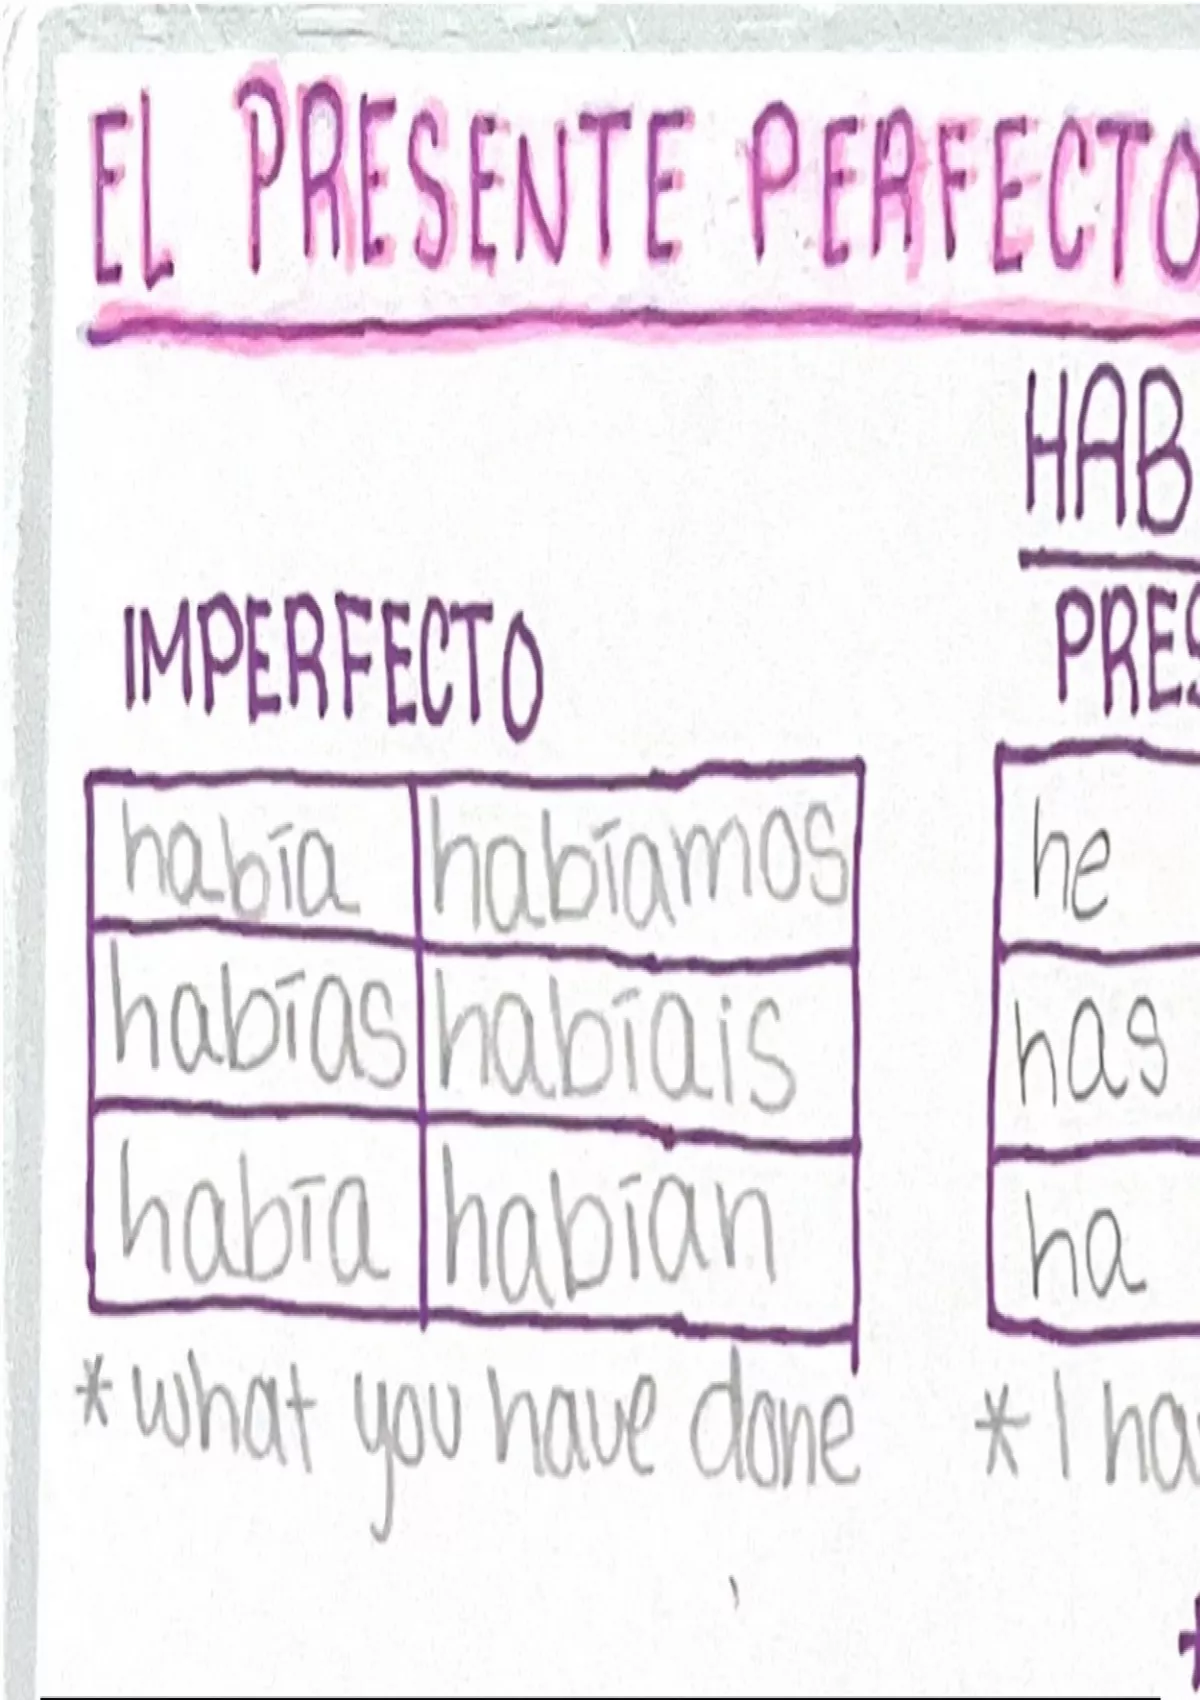 EL PRESENTE PERFECTO
HAB
IMPERFECTO
PRES
había habíamos
habías habíais
había habían
he
has
ha
*what you have done
*I ha